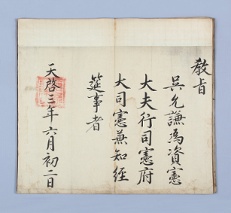 教旨
吳允謙為資憲
大夫行司憲府
大司憲兼知經
筵事者
天啓三年六月初二日